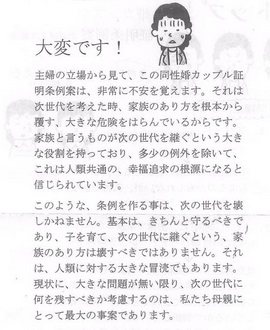 大変です！
主婦の立場から見て、この同性婚カップル証
明条例案は、非常に不安を覚えます。それは
次世代を考えた時、家族のあり方を根本から
覆す、大きな危険をはらんでいるからです。
家族と言うものが次の世代を継ぐという大き
な役割を持っており、多少の例外を除いて、
これは人類共通の、幸福追求の根源になると
信じられています。
このような、条例を作る事は、次の世代を壊
しかねません。基本は、きちんと守るべきで
あり、子を育て、次の世代に継ぐという、家
族のあり方は壊すべきではありません。それ
は、人類に対する大きな冒涜でもあります。
現状に、大きな問題が無い限り、次の世代に
何を残すべきか考慮するのは、私たち母親に
とって最大の事案であります。